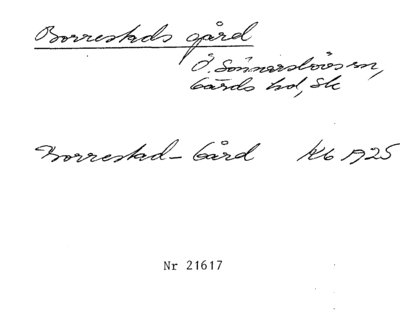 Borrestads gård
Ö. Sönnarslövs sn,
Gärds hd, Sk
Borrestad - Gård Kb 1925
Nr 21617